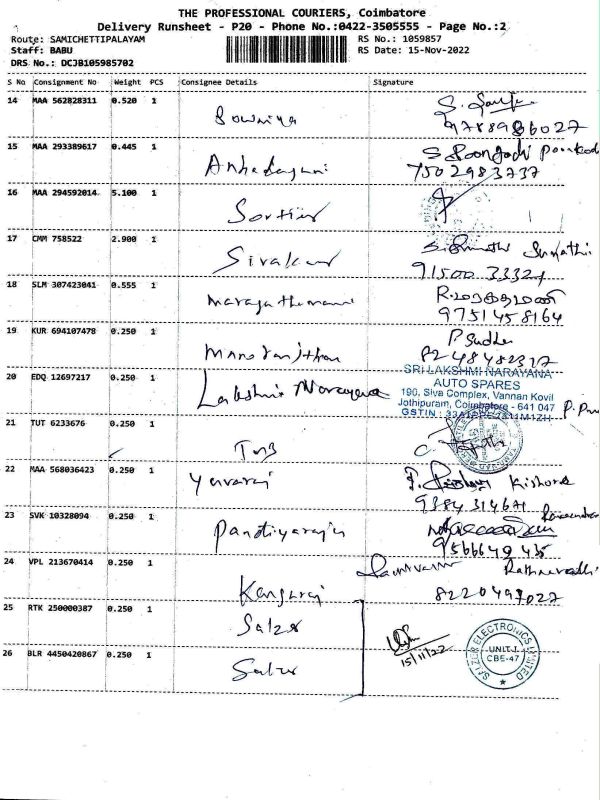 THE PROFESSIONAL COURIERS, Coimbatore
Delivery Runsheet - P20 - Phone No.:0422-3505555 - Page No.:2
Route: SAMICHETTIPALAYAM RS No.: 1059857
Staff: BABU RS Date: 15-Nov-2022
DRS No.: DCJB105985702
S No Consignment No Weight PCS Consignee Details Signature
14 MAA 562828311 0.520 1
Sowmiya
9788986027
15 MAA 293389617 0.445 1
7502983737
16 MAA 294592014 5.100 1
17 CMM 758522 2.900 1
Sivakumar
91500 33321
18 SLM 307423041 0.555 1
Maragathamani R.மரகதமணி
9751458164
19 KUR 694107478 0.250 1
P Sudha
Manoranjitham
20 EDQ 12697217 0.250 1
Lakshmi Narayana
SRI LAKSHMI NARAYANA
AUTO SPARES
190, Siva Complex, Vannan Kovil
Jothipuram, Coimbatore - 641 047
GSTIN :
21 TUT 6233676 0.250 1
TMB
22 MAA 568036423 0.250 1
Yuvaraj Kishore
23 SVK 10328094 0.250 1
Pandiyaraju
24 VPL 213670414 0.250 1
Kanguraj
8220497027
25 RTK 250000387 0.250 1
Salzer
15/11/22
SALZER ELECTRONICS LIMITED
UNIT-I
CBE-47
26 BLR 4450420867 0.250 1
Salzer